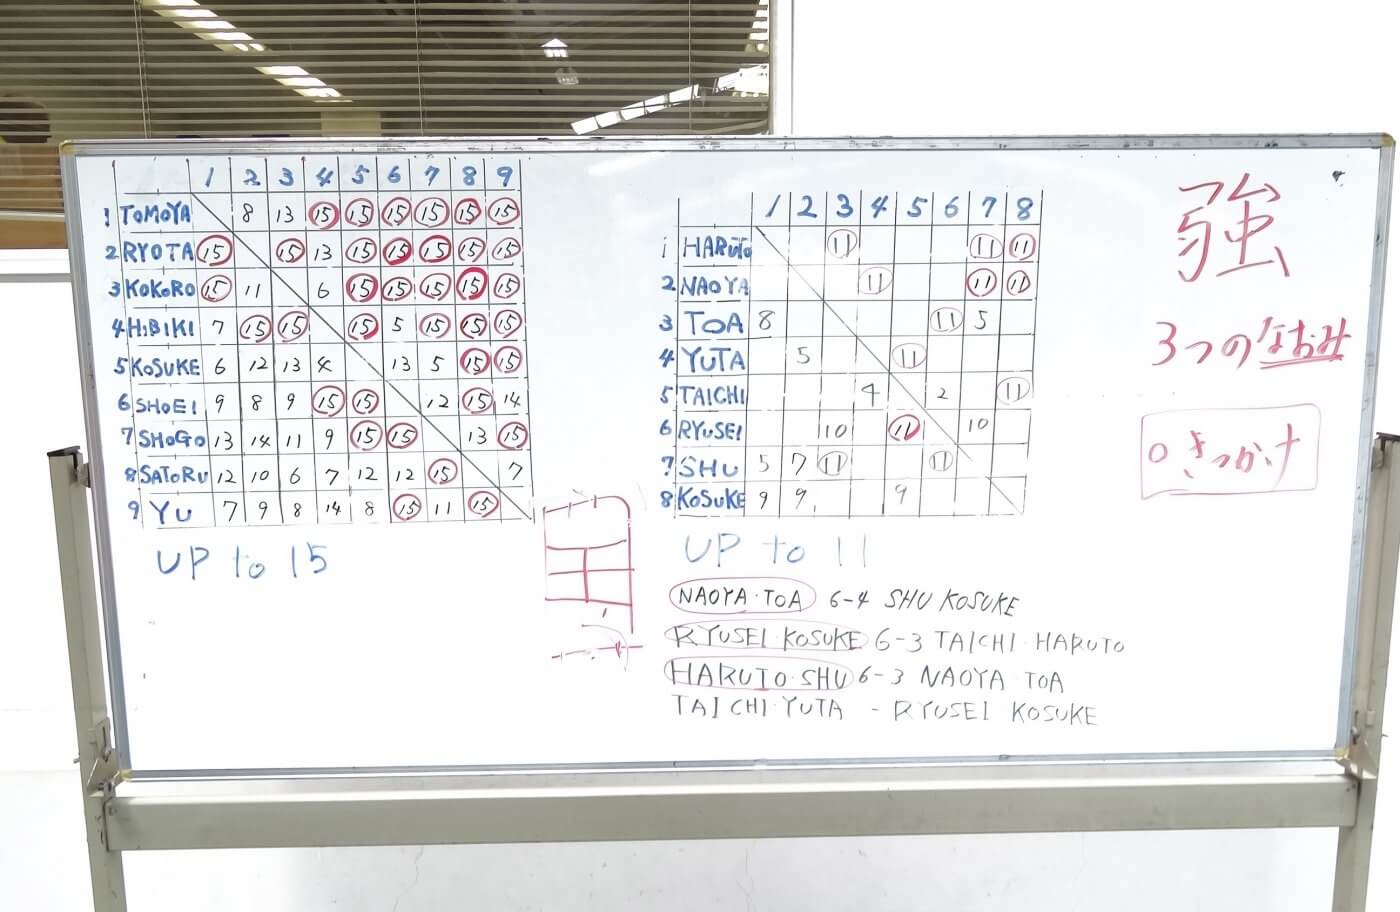 1 2 3 4 5 6 7 8 9
1 TOMOYA 8 13 15 15 15 15 15 15
2 RYOTA 15 15 13 15 15 15 15 15
3 KOKORO 15 11 6 15 15 15 15 15
4 HiBiKI 7 15 15 15 5 15 15 15
5 KOSUKE 6 12 13 4 13 5 15 15
6 SHOEI 9 8 9 15 15 12 15 14
7 SHOGO 13 14 11 9 15 15 13 15
8 SATORU 12 10 6 7 12 12 15 7
9 YU 7 9 8 14 8 15 11 15
UP to 15
1 2 3 4 5 6 7 8
1 HARUTO 11 11 11
2 NAOYA 11 11 11
3 TOA 8 11 5
4 YUTA 5 11
5 TAICHI 4 2 11
6 RYUSEI 10 11 10
7 SHU 5 7 11 11
8 KOSUKE 9 9 9
UP to 11
NAOYA・TOA 6-4 SHU KOSUKE
RYUSEI・KOSUKE 6-3 TAICHI HARUTO
HARUTO・SHU 6-3 NAOYA TOA
TAICHI・YUTA - RYUSEI KOSUKE
強
3つのなおみ
○きっかけ